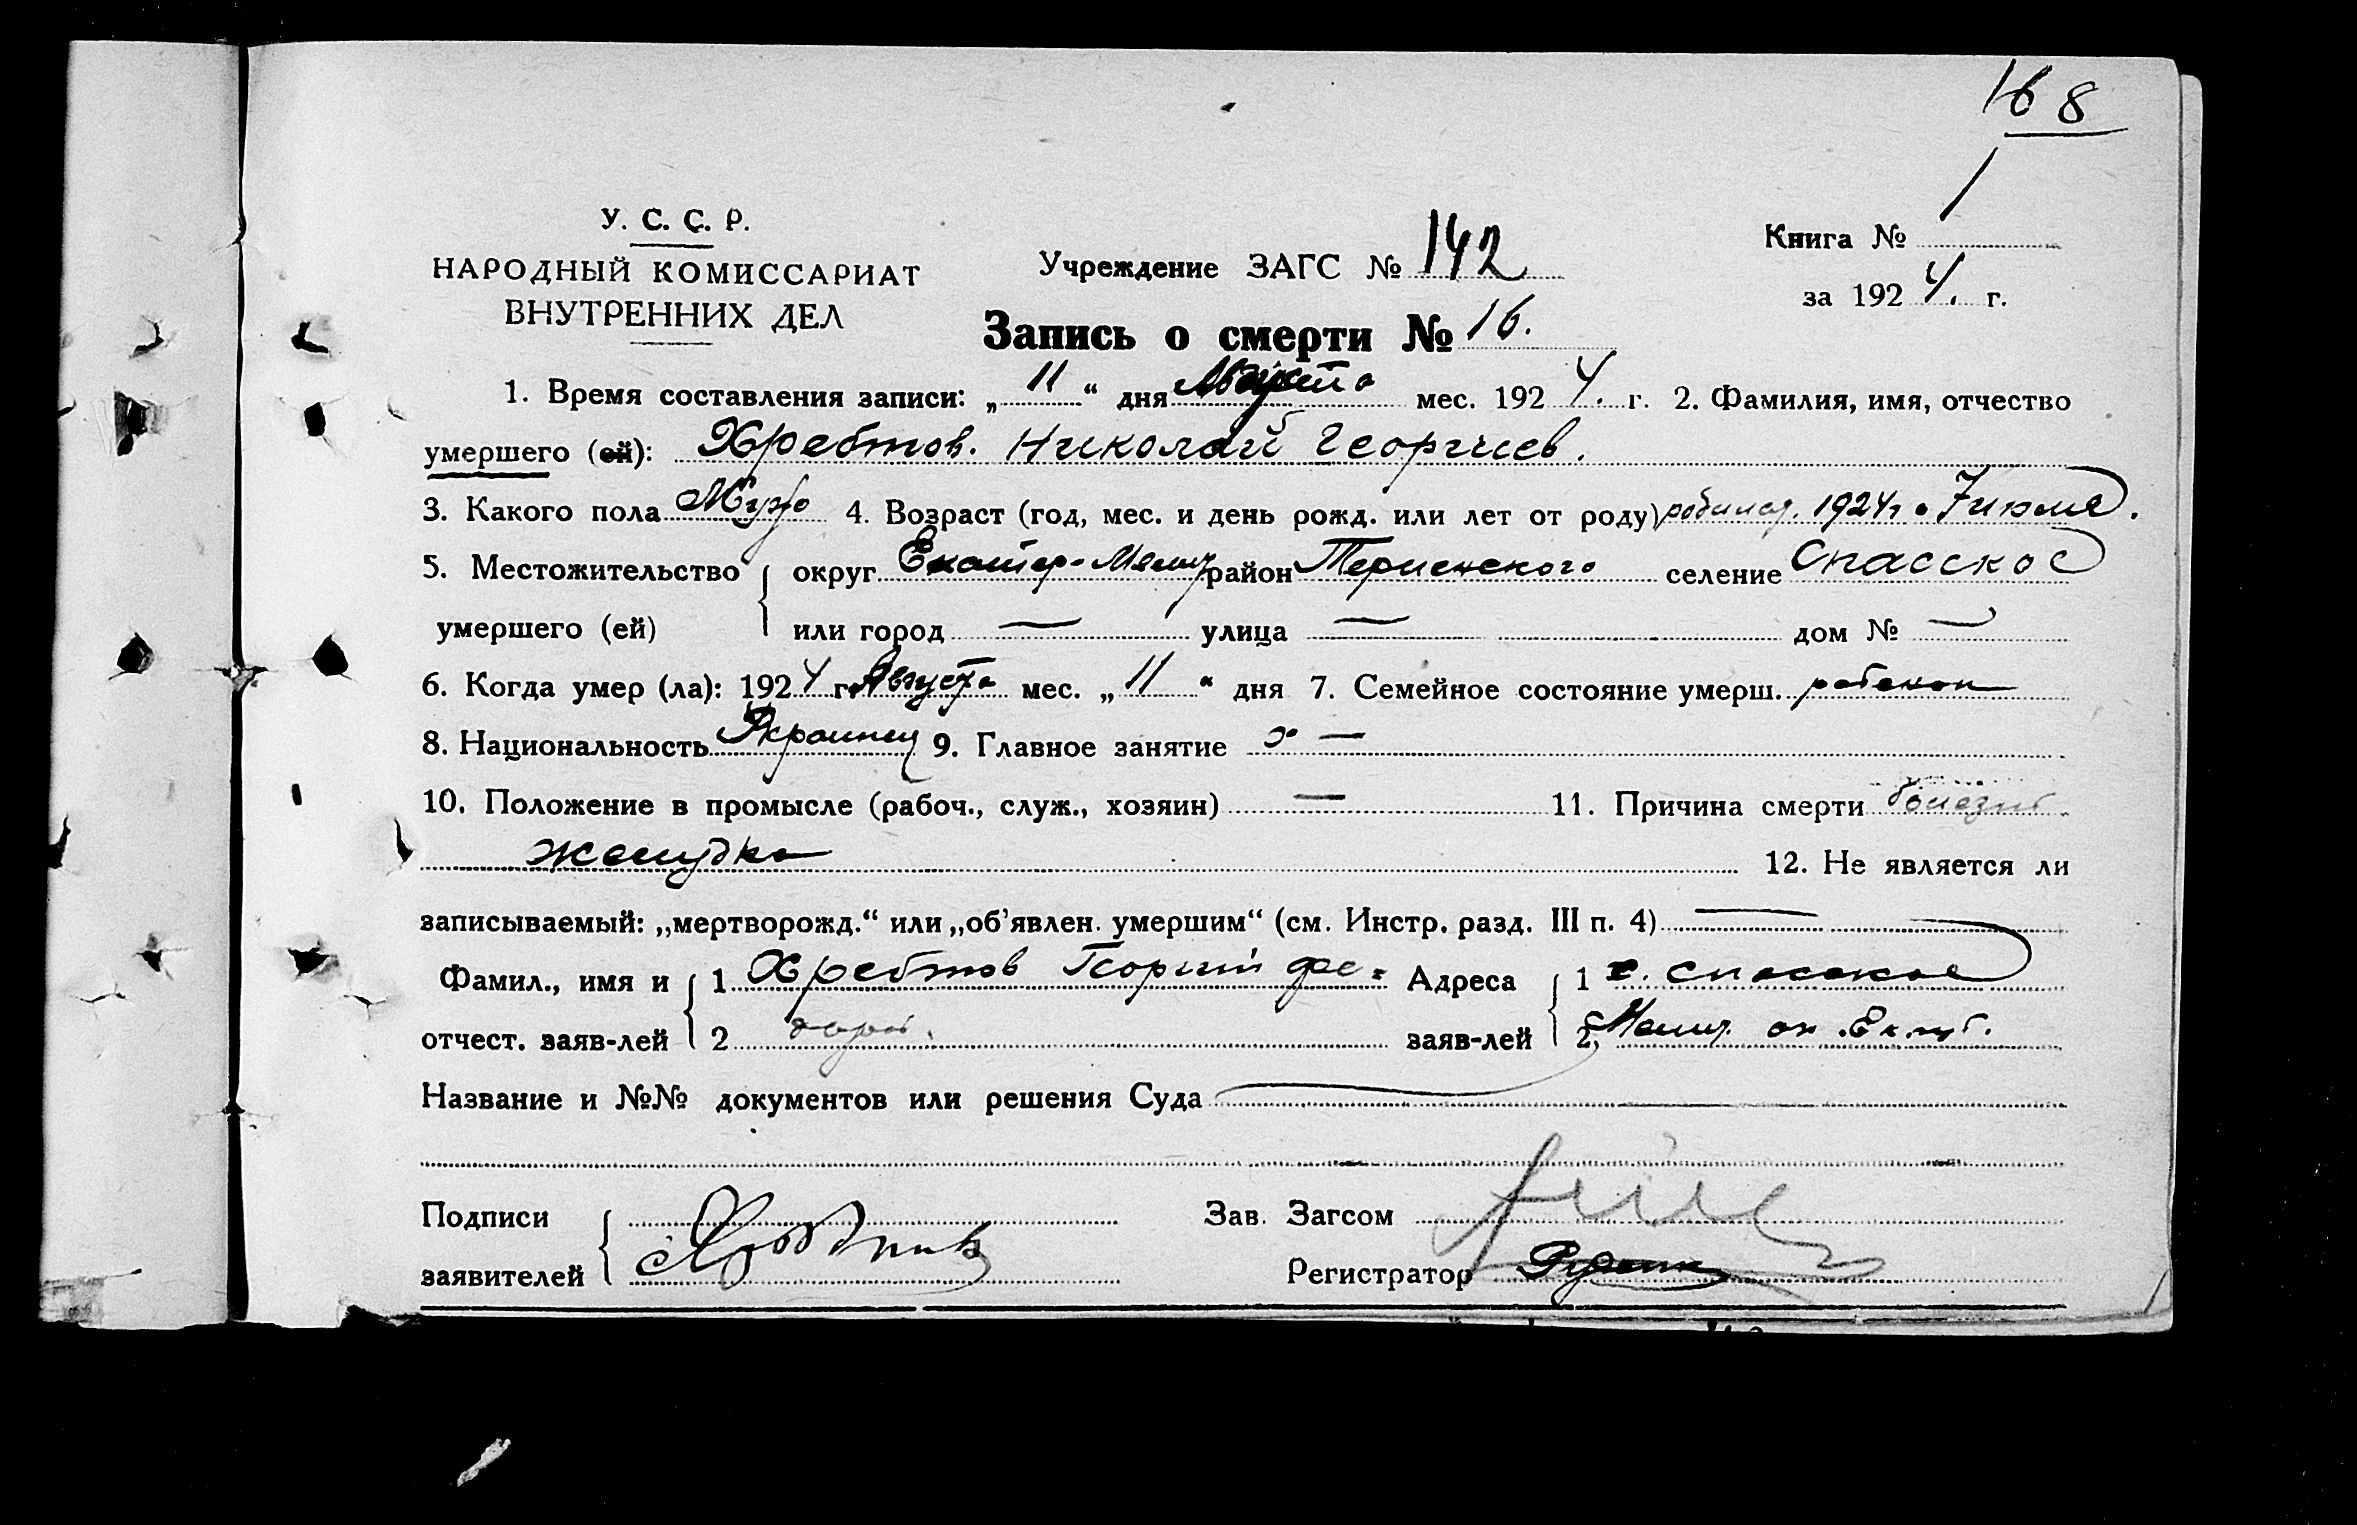 168
У. С. С. Р.
НАРОДНЫЙ КОМИССАРИАТ
ВНУТРЕННИХ ДЕЛ
Учреждение ЗАГС № 142
Книга № 1
за 1924. г.
Запись о смерти № 16.
1. Время составления записи: „11“ дня Августа мес. 1924. г. 2. Фамилия, имя, отчество
умершего (ей): Хребтов. Николай Георгиев.
3. Какого пола Муж 4. Возраст (год, мес. и день рожд. или лет от роду) 1924г. 7 июля.
5. Местожительство округ Екатер-Мелит район селение Спасское
умершего (ей) или город — улица — дом № —
6. Когда умер (ла): 1924 г. Августа мес. „11“ дня 7. Семейное состояние умерш. ребенок
8. Национальность Украинец 9. Главное занятие —
10. Положение в промысле (рабоч., служ., хозяин) — 11. Причина смерти болезнь
желудка 12. Не является ли
записываемый: „мертворожд.“ или „об’явлен. умершим“ (см. Инстр. разд. III п. 4) —
Фамил., имя и 1 Хребтов Георгий Фе= Адреса 1 с. Спасское
отчест. заяв-лей 2 заяв-лей 2 Мелит. ок. Ек.
Название и №№ документов или решения Суда
Подписи Зав. Загсом
заявителей Регистратор